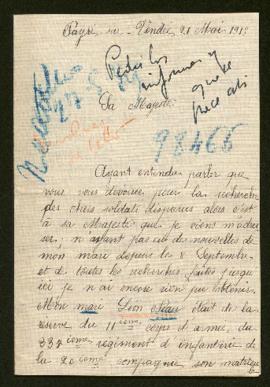 Payré sur Vendée 21 Mai 191
Pedir los
informes y
que se
27-5
Sa Majesté
98466
Ayant entendu parler que
vous vous dévouez pour la recherche
des chers soldats disparus alors c'est
à sa Majesté que je viens m'adres
ser, n'ayant pas eu de nouvelles de
mon mari depuis le 8 Septembre
et de toutes les recherches faites jusqu'
ici je n'ai encore rien pu obtenir.
Mon mari Léon était de la
réserve du 11ième corps d'armée, du
337ième régiment d'infanterie de
la 20ième compagnie son matricule